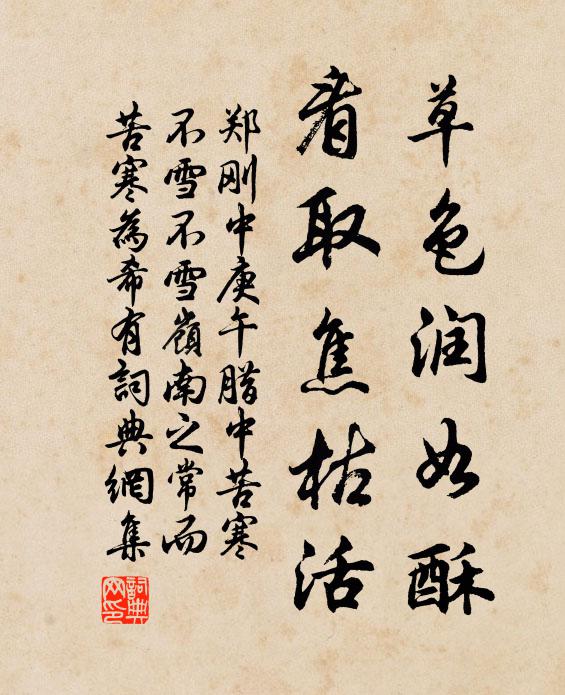 草色润如酥
看取焦枯活
郑刚中庚午腊中苦寒
不雪不雪嶺南之常而
苦寒為希有詞典網集
詞典網印